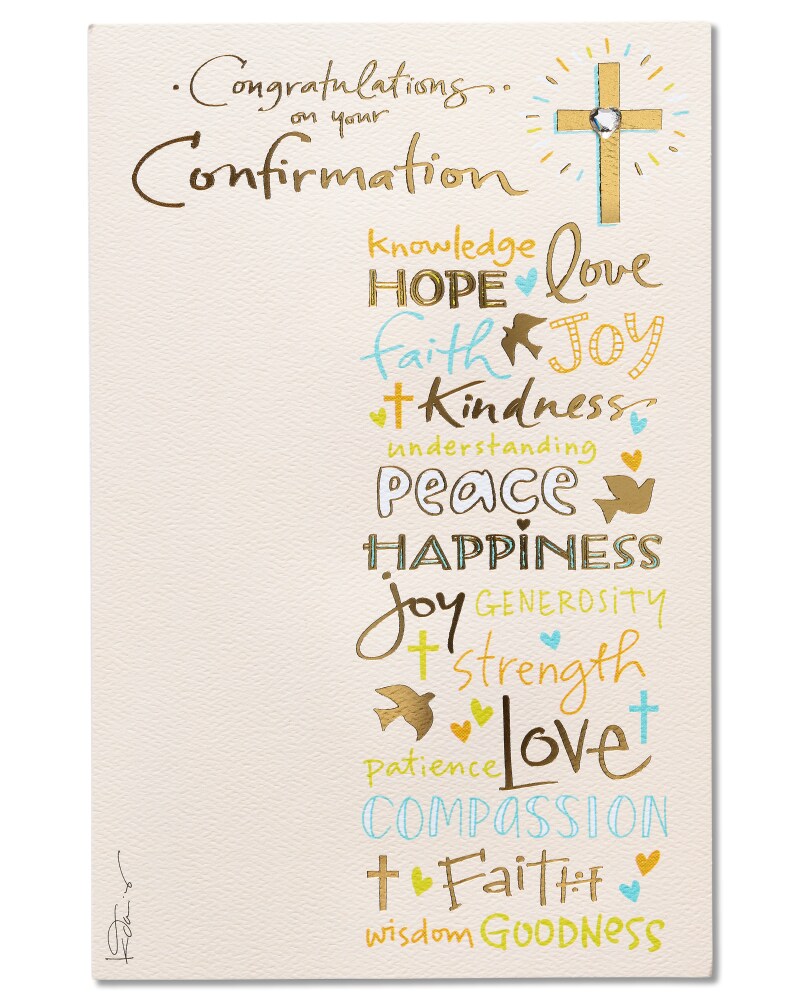 Congratulations
on your
Confirmation
knowledge
HOPE love
faith JOY
Kindness
understanding
peace
HAPPINESS
joy GENEROSITY
strength
patience LOVE
COMPASSION
FAITH
wisdom GOODNESS